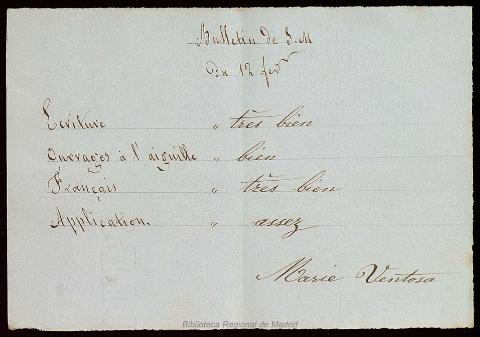 Bulletin de S. M
Du 12 fevr
Ecriture " très bien
Ouvrages à l'aiguille " bien
Français " très bien
Application. " assez
Marie Ventosa
Biblioteca Regional de Madrid